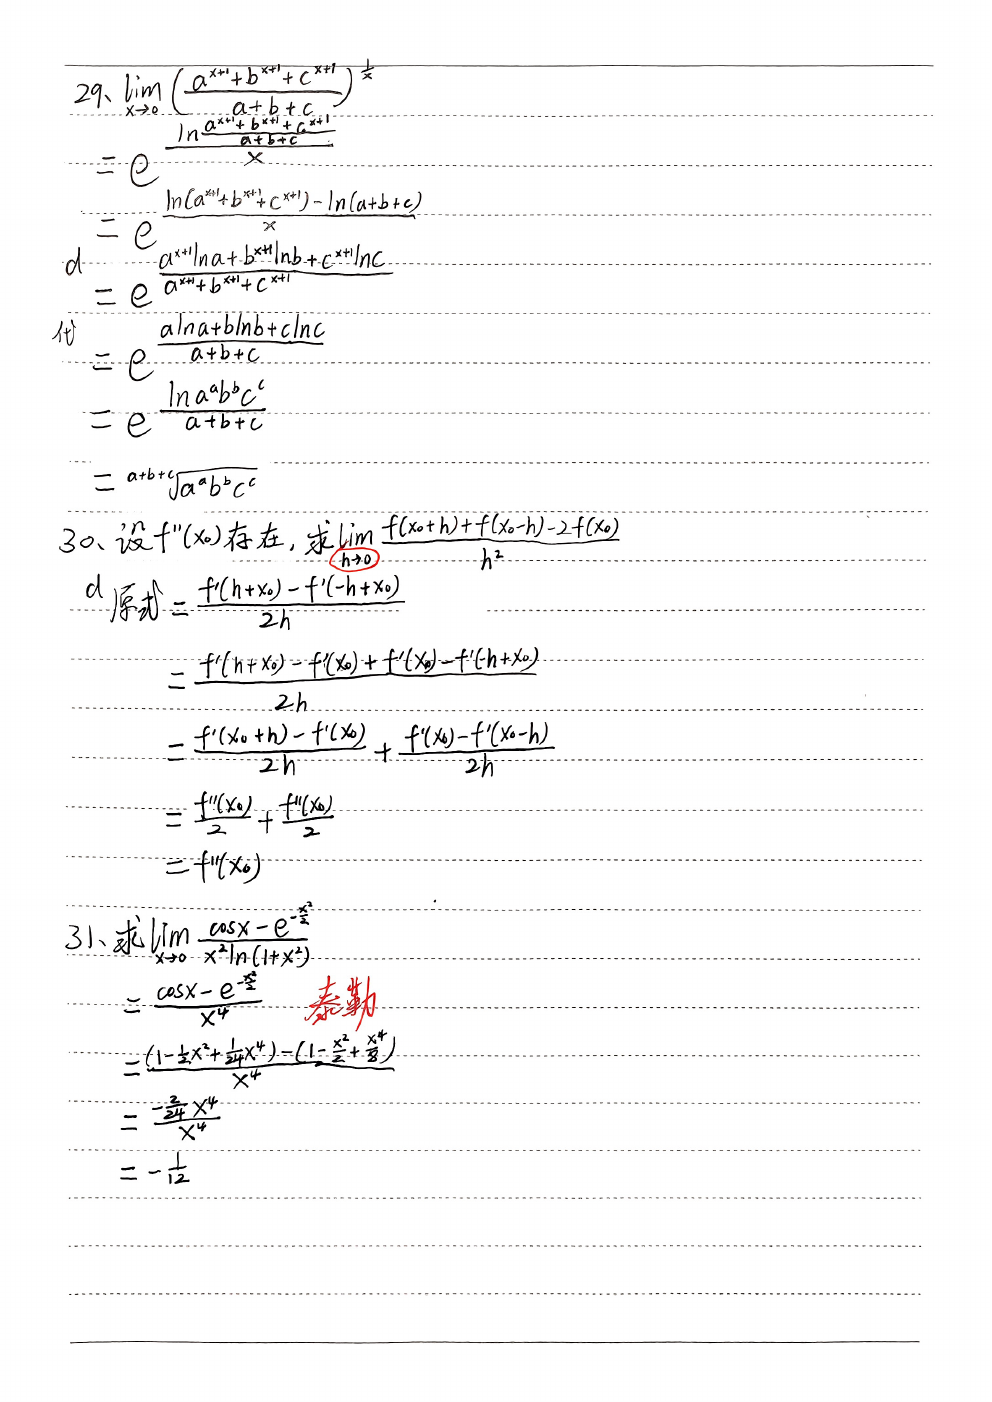 29、lim_{x→0} ((a^{x+1}+b^{x+1}+c^{x+1})/(a+b+c))^{1/x}
= e^{(ln (a^{x+1}+b^{x+1}+c^{x+1})/(a+b+c))/x}
= e^{(ln(a^{x+1}+b^{x+1}+c^{x+1})-ln(a+b+c))/x}
d = e^{(a^{x+1}lna+b^{x+1}lnb+c^{x+1}lnc)/(a^{x+1}+b^{x+1}+c^{x+1})}
代 = e^{(alna+blnb+clnc)/(a+b+c)}
= e^{(ln a^a b^b c^c)/(a+b+c)}
= ^{a+b+c}√(a^a b^b c^c)
30、设f''(x₀)存在, 求lim_{h→0} (f(x₀+h)+f(x₀-h)-2f(x₀))/h²
d 原式 = (f'(h+x₀)-f'(-h+x₀))/2h
= (f'(h+x₀)-f'(x₀)+f'(x₀)-f'(-h+x₀))/2h
= (f'(x₀+h)-f'(x₀))/2h + (f'(x₀)-f'(x₀-h))/2h
= f''(x₀)/2 + f''(x₀)/2
= f''(x₀)
31、求lim_{x→0} (cosx-e^{-x²/2})/(x²ln(1+x²))
= (cosx-e^{-x²/2})/x⁴ 泰勒
= ((1-1/2x²+1/24x⁴)-(1-x²/2+x⁴/8))/x⁴
= (-2/24 x⁴)/x⁴
= -1/12